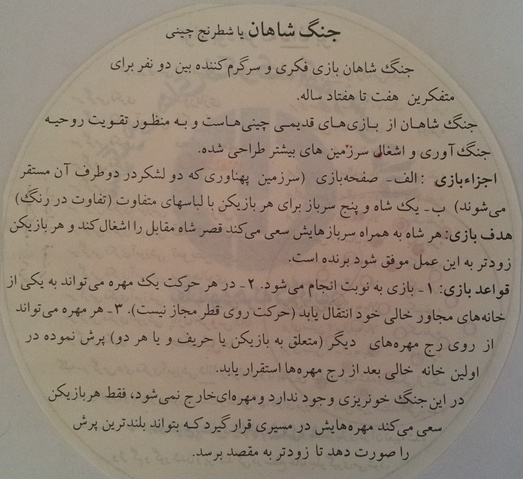 جنگ شاهان یا شطرنج چینی
جنگ شاهان بازی فکری و سرگرم‌کننده بین دو نفر برای
متفکرین هفت تا هفتاد ساله.
جنگ شاهان از بازی‌های قدیمی چینی‌هاست و به منظور تقویت روحیه
جنگ آوری و اشغال سرزمین های بیشتر طراحی شده.
اجزاءبازی : الف- صفحه‌بازی (سرزمین پهناوری که دو لشکردر دوطرف آن مستقر
می‌شوند) ب- یک شاه و پنج سرباز برای هر بازیکن با لباسهای متفاوت (تفاوت در رنگ)
هدف بازی: هر شاه به همراه سربازهایش سعی می‌کند قصر شاه مقابل را اشغال کند و هر بازیکن
زودتر به این عمل موفق شود برنده است.
قواعد بازی: ۱- بازی به نوبت انجام می‌شود. ۲- در هر حرکت یک مهره می‌تواند به یکی از
خانه‌های مجاور خالی خود انتقال یابد (حرکت روی قطر مجاز نیست). ۳- هر مهره می‌تواند
از روی رج مهره‌های دیگر (متعلق به بازیکن یا حریف و یا هر دو) پرش نموده در
اولین خانه خالی بعد از رج مهره‌ها استقرار یابد.
در این جنگ خونریزی وجود ندارد و مهره‌ای خارج نمی‌شود، فقط هربازیکن
سعی می‌کند مهره‌هایش در مسیری قرار گیرد که بتواند بلندترین پرش
را صورت دهد تا زودتر به مقصد برسد.